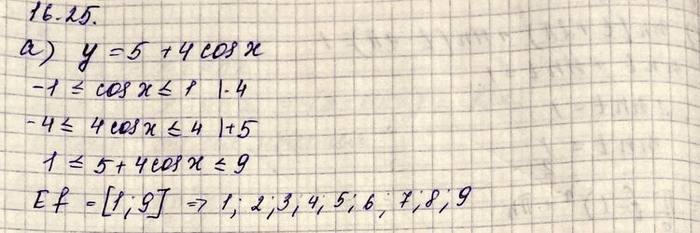 16.25.
a) y = 5 + 4 cos x
-1 ≤ cos x ≤ 1 |·4
-4 ≤ 4 cos x ≤ 4 |+5
1 ≤ 5 + 4 cos x ≤ 9
Ef = [1; 9] => 1; 2; 3; 4; 5; 6; 7; 8; 9